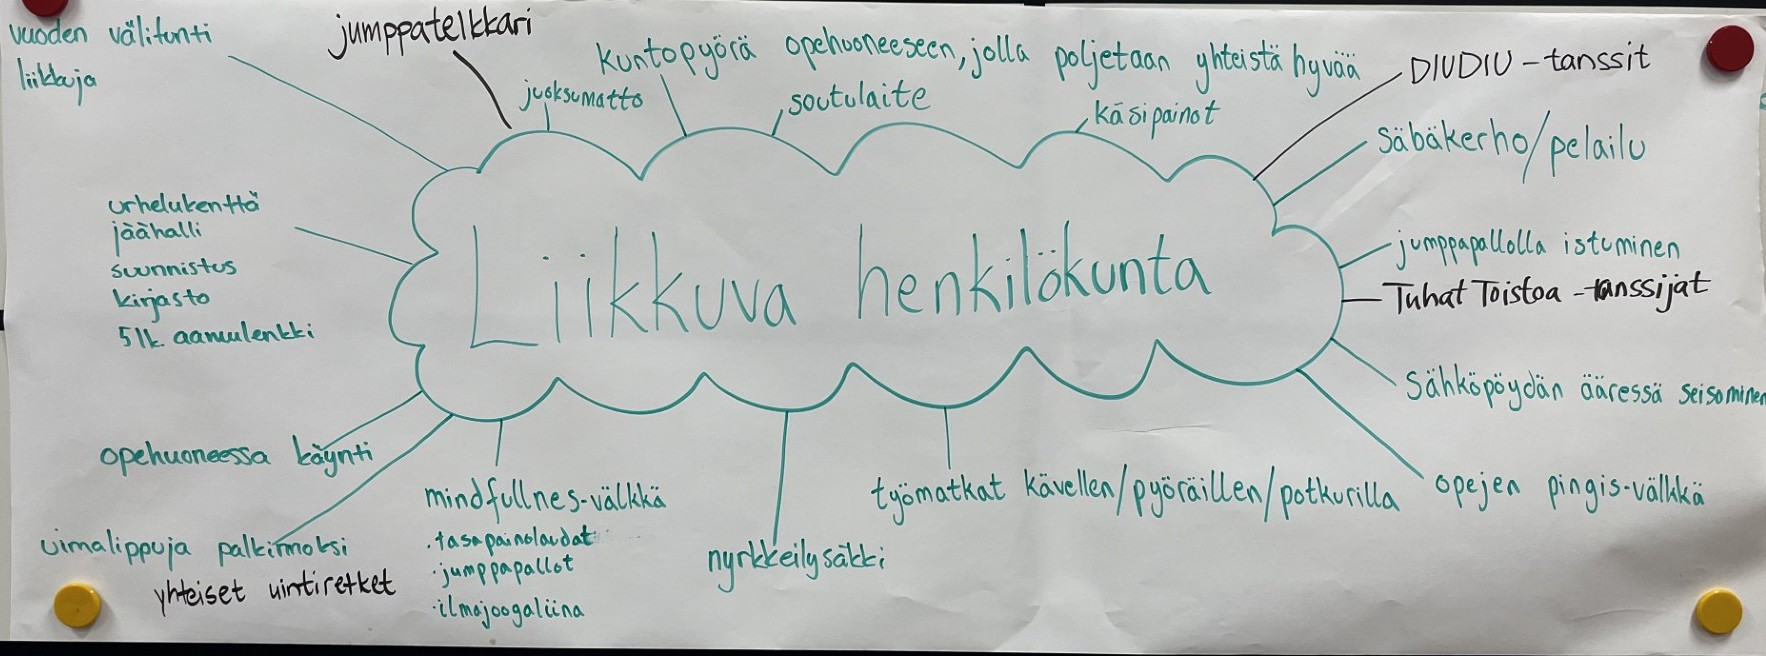 vuoden välitunti
liikkuja
jumppatelkkari
juoksumatto
kuntopyörä opehuoneeseen, jolla poljetaan yhteistä hyvää
soutulaite
käsipainot
DIUDIU-tanssit
Säbäkerho/pelailu
jumppapallolla istuminen
Tuhat Toistoa -tanssijat
Sähköpöydän ääressä seisominen
opejen pingis-välkkä
Liikkuva henkilökunta
urhelukenttä
jäähalli
suunnistus
kirjasto
5 lk. aamulenkki
opehuoneessa käynti
uimalippuja palkinnoksi
yhteiset uintiretket
mindfullnes-välkkä
·tasapainolaudat
·jumppapallot
·ilmajoogaliina
nyrkkeilysäkki
työmatkat kävellen/pyöräillen/potkurilla